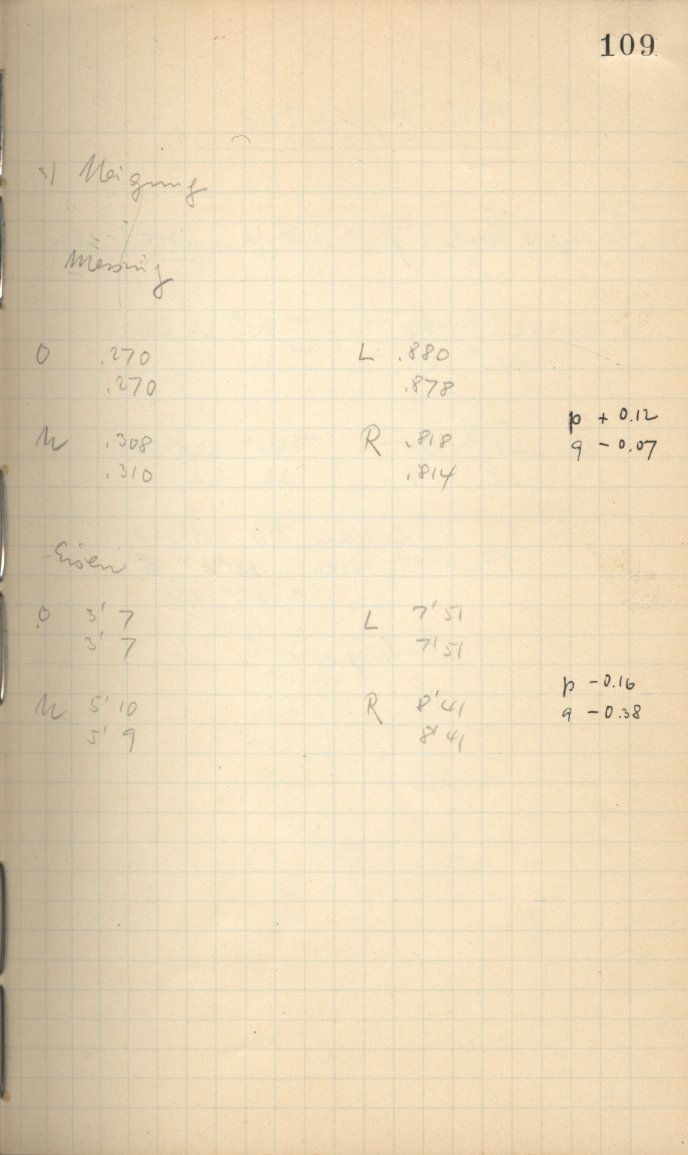 109
3) Neigung
Messing
O .270 L .880
.270 .878
p + 0.12
U .308 R .818 q - 0.07
.310 .814
Eisen
O 3' 7 L 7'51
3' 7 7'51
p - 0.16
U 5' 10 R 8'41 q - 0.38
5' 9 8'41